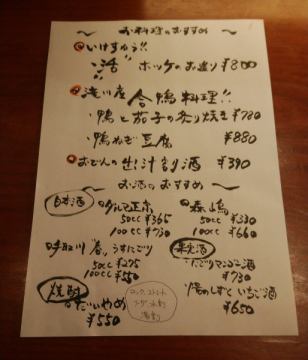 〜お料理のおすすめ〜
いけすゅう!!
"活" ホッケのお造り ¥800
滝川産 合鴨料理!!
・鴨と茄子の炙り焼き ¥780
・鴨ねぎ豆腐 ¥880
おでんの出汁割酒 ¥390
〜お酒のおすすめ〜
日本酒
正宗
50cc ¥365
100cc ¥730
森嶋
50cc ¥330
100cc ¥660
春、うすにごり
50cc ¥275
100cc ¥550
果実酒
・にごりマンゴー酒
¥730
・陽のしずく いちご酒
¥650
焼酎
だいやめ
¥550
ロック、ストレート
ソーダ、水割
湯割